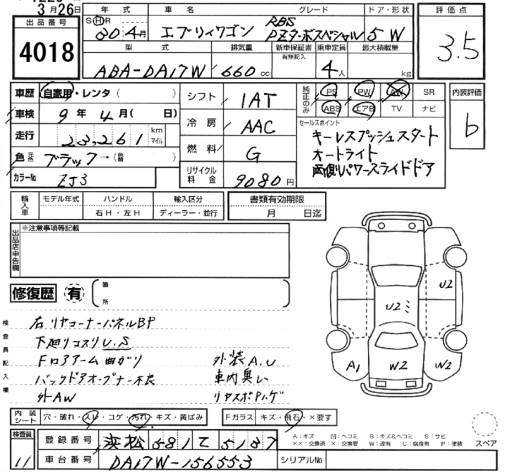 3月26日
出品番号
4018
年式 車名 グレード ドア・形状
S H R
30 4月 エブリィワゴン RBS PZターボスペシャル 5 W
型式 排気量 新車保証書 有無記入 乗車定員 最大積載量
ABA-DA17W 660 cc 4人 kg
評価点
3.5
車歴 自家用・レンタ
シフト 1AT
純正のみ PS PW SR
ABS エアB TV ナビ
内装評価
b
車検 9年 4月( 日)
冷房 AAC
セールスポイント
キーレスプッシュスタート
オートライト
両側パワースライドドア
走行 23,261 km マイル
燃料 G
色 ブラック→
カラーNo ZJ3
リサイクル料金 9080円
輸入車 モデル年式 ハンドル 輸入区分
右H・左H ディーラー・並行
書類有効期限
月 日迄
出品店申告欄
※注意事項等記載
修復歴 有 箇所
検査員記入欄
右リヤコーナーパネルBP
下廻りコスリU.S
Fロアアーム曲がり 外装A.U
バックドアオープナー不良 車内臭い
外AW
U2
U2
A1 W2 W2
内装シート 穴・破れ・スレ・コゲ・汚れ・キズ・黄ばみ
Fガラス キズ・飛石・×要す
スペア
検査員 11
登録番号 浜松 581 て 5137
車台番号 DA17W-156553
シリアルNo.